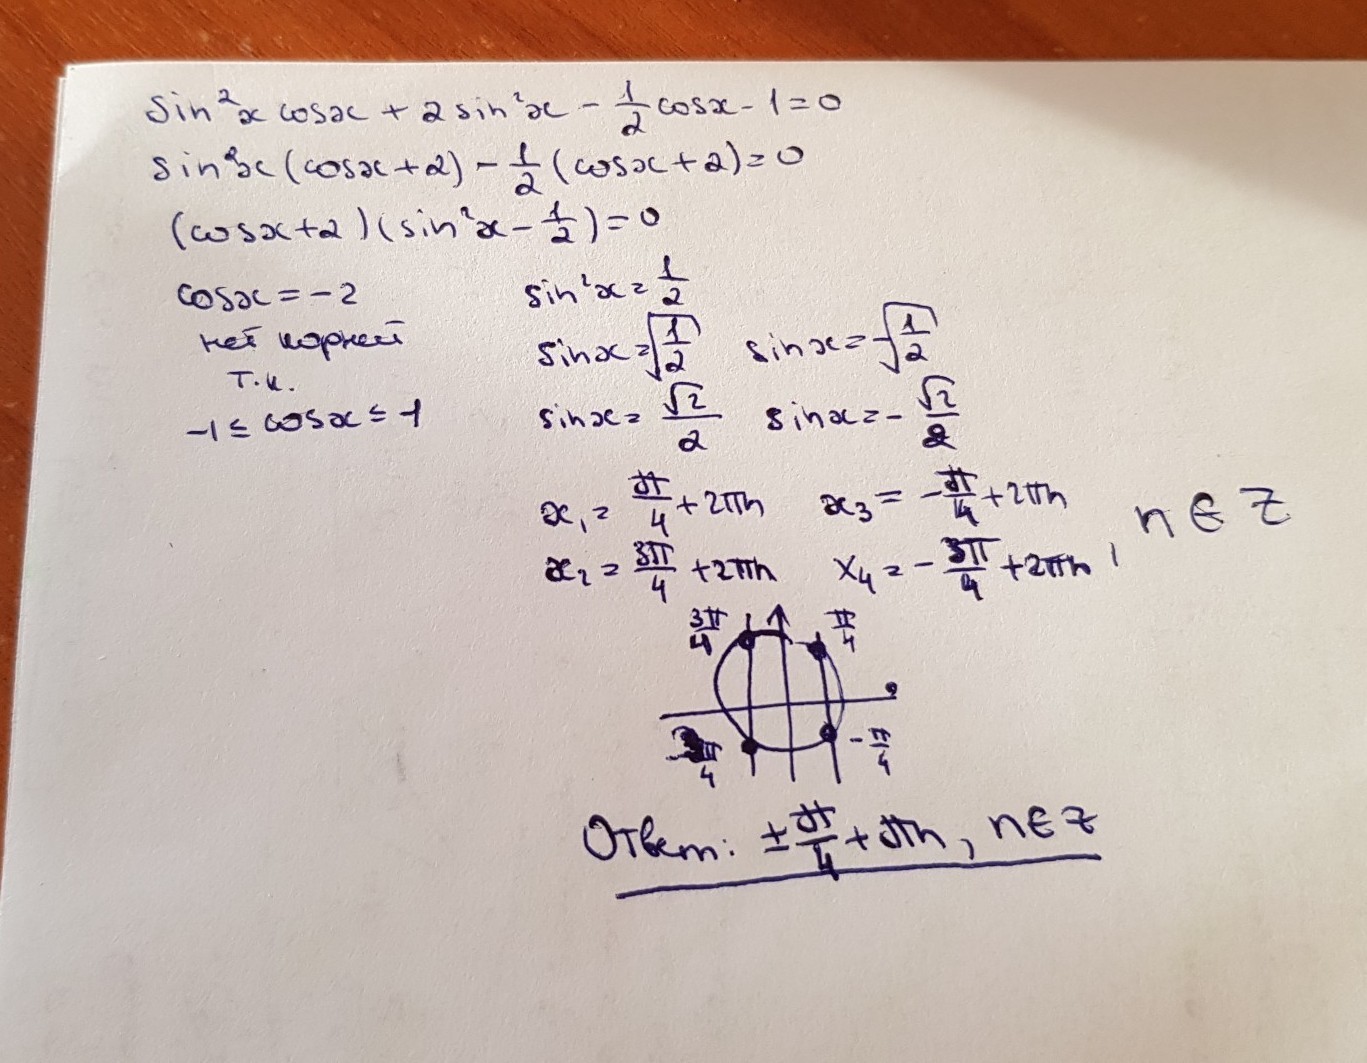 sin²x cosx + 2 sin²x - 1/2 cosx - 1 = 0
sin²x (cosx + 2) - 1/2 (cosx + 2) = 0
(cosx + 2)(sin²x - 1/2) = 0
cosx = -2
нет корней
т.к.
-1 ≤ cosx ≤ -1
sin²x = 1/2
sinx = √(1/2) sinx = -√(1/2)
sinx = √2/2 sinx = -√2/2
x₁ = π/4 + 2πn x₃ = -π/4 + 2πn
x₂ = 3π/4 + 2πn x₄ = -3π/4 + 2πn, n ∈ Z
3π/4 π/4
-3π/4 -π/4
Ответ: ± π/4 + πn, n ∈ Z